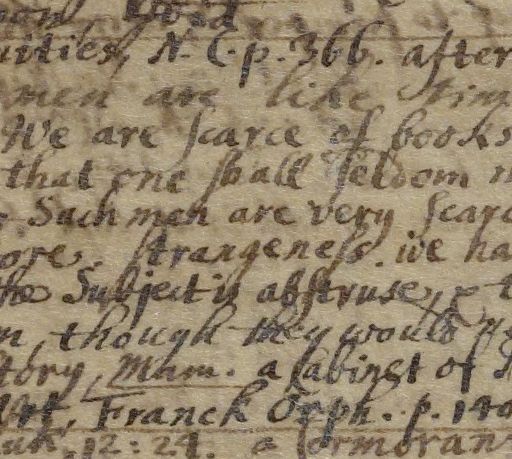 uities, N. C. p. 366. after
men are like tim
We are ſcarce of books
that one ſhall ſeldom
Such men are very ſcarc
ore. ſtrangeneſs. we ha
the Subject is abſtruse,
though they would
ſtory, Mum. a Cabinet of
Art, Franck Orph. p. 140
Luk. 12: 24. a Cormoran